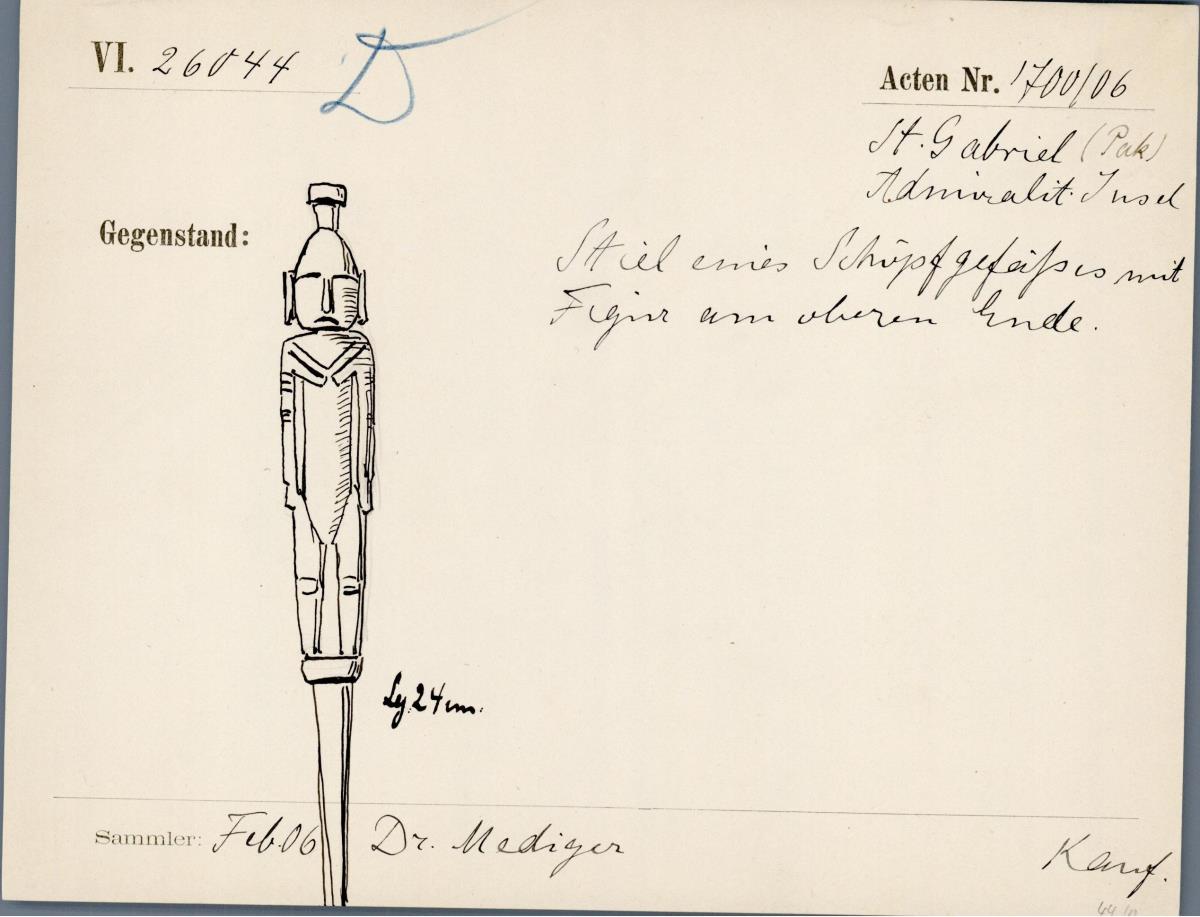 VI. 26044 D
Acten Nr. 1700/06
St. Gabriel (Pak)
Admiralit. Insel
Gegenstand:
Stiel eines Schöpfgefäßes mit
Figur am oberen Ende.
Lg. 24 cm.
Sammler: Feb. 06 Dr. Mediger
Kauf.